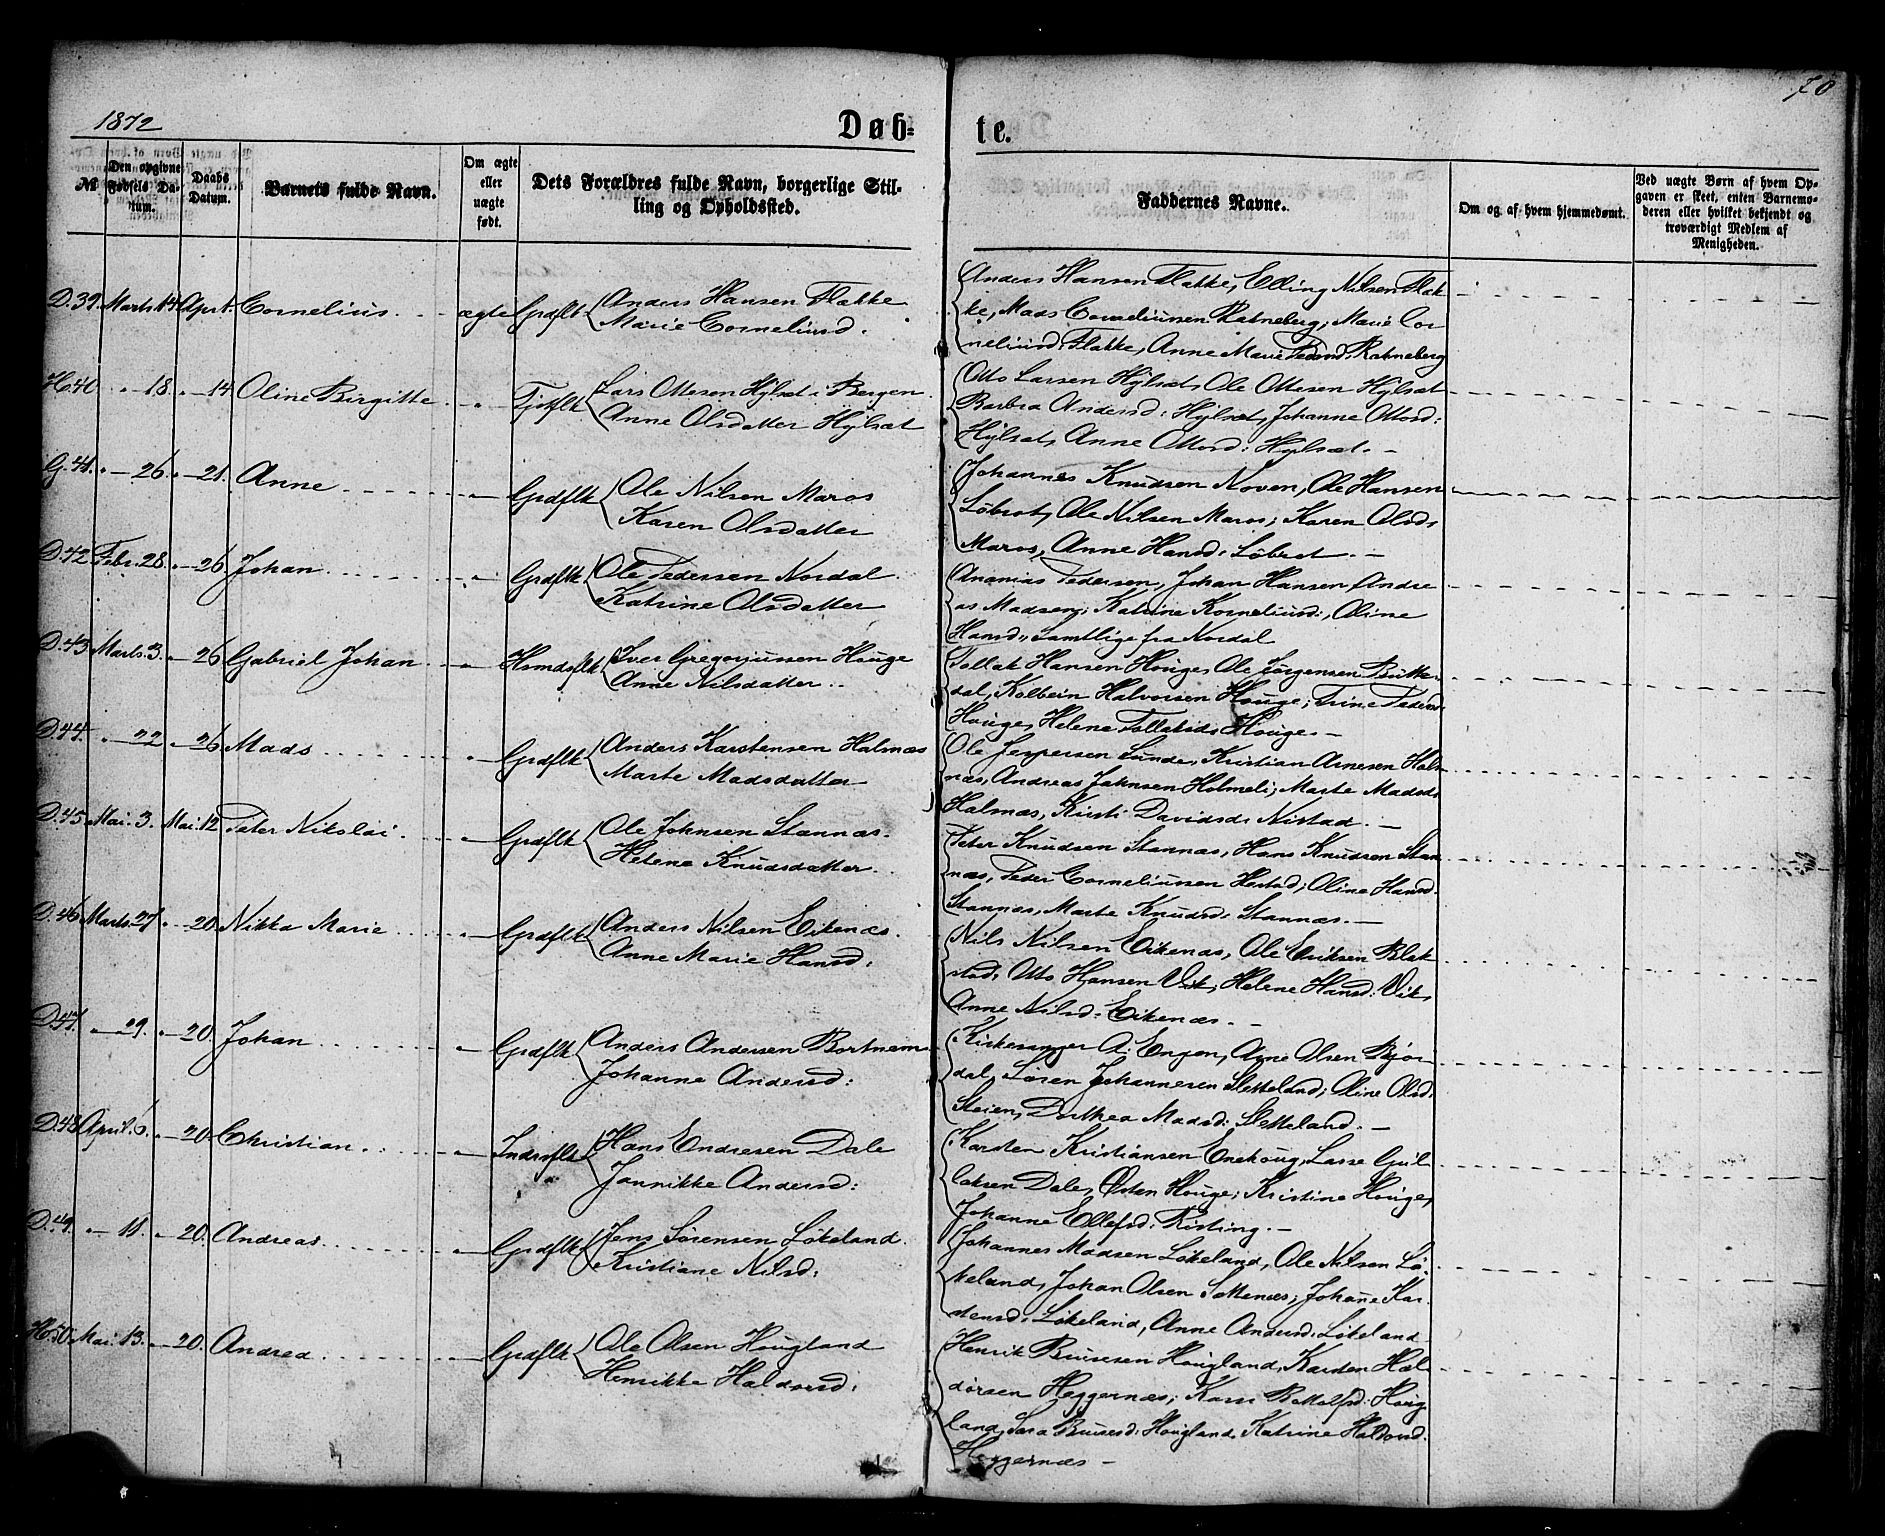 1872
70
Døb-
te.
№
Den opgivne Fødsels Datum.
Daabs Datum.
Barnets fulde Navn.
Om ægte eller uægte født.
Dets Forældres fulde Navn, borgerlige Stilling og Opholdssted.
Faddernes Navne.
Om og af hvem hjemmedøbt.
Ved uægte Børn af hvem Opgaven er skeet, enten Barnemoderen eller hvilket bekjendt og troværdigt Medlem af Menigheden.
D.39. Marts.14 Apr. 1. Cornelius. ægte Grdflk Anders Hansen Flække
Marie Corneliusd.
Anders Hansen Flække, Elling Nilsen Flæk-
ke, Mads Corneliussen Ratneberg; Marie Cor-
neliusd: Flække, Anne Marie Pedersd: Ratneberg
H.40 " - 18. " - 14 Oline Birgitte. " Tjotflk Lars Ottesen Hylsæt i Bergen.
Anne Olsdatter Hylsæt
Otto Larsen Hylsæt, Ole Ottesen Hylsæt
Barbra Andersd: Hylsæt, Johanne Ottosd:
Hylsæt, Anne Ottosd: Hylsæt. -
G.41. " - 26 " - 21. Anne. " Grdflk Ole Nilsen Maros
Karen Olsdatter
Johannes Knudsen Noven, Ole Hansen
Løbrot, Ole Nilsen Maros; Karen Olsd:
Maros, Anne Hansd: Løbrot. -
D.42 Febr. 28. " - 26. Johan " Grdflk Ole Pedersen Nordal
Katrine Olsdatter
Ananias Pedersen, Johan Hansen, Andre-
as Madsen; Katrine Korneliusd:, Oline
Hansd:, Samtlige fra Nordal
D.43 Marts. 3. " - 26 Gabriel Johan " Hsmdsflk Iver Gregoriussen Houge
Anne Nilsdatter.
Tollak Hansen Houge, Ole Jørgensen Bukke-
dal, Kolbein Halvorsen Houge; Trine Pedersd
Houge, Helene Tollaksd: Houge. -
D.44. " - 22 " - 26 Mads " Grdflk Anders Karstensen Halmæs
Marte Madsdatter
Ole Jespersen Sunde, Kristian Arnesen Hal-
næs, Andreas Johnsen Holmeli; Marte Madsd:
Halmæs, Kirsti Davidsd: Nistad. -
D.45 Mai. 3. Mai. 12 Peter Nikolai. " Grdflk Ole Johnsen Stannæs.
Helene Knudsdatter.
Peter Knudsen Stannæs, Hans Knudsen Stan-
næs, Peder Corneliussen Hestad; Oline Hansd.
Stannæs, Marte Knudsd: Stannæs. -
D.46 Marts. 27 " - 20. Nikka Marie " Grdflk Anders Nilsen Eikenæs.
Anne Marie Hansd:
Nils Nilsen Eikenæs, Ole Eriksen Blek-
stad, Otto Hansen Vik; Helene Hansd: Vik,
Anne Nilsd: Eikenæs. -
D.47. " - 29. " - 20. Johan " Grdflk Anders Andersen Bortnem
Johanne Andersd:
Kirkesanger A. Engen, Arne Olsen Bjor-
dal, Søren Johannesen Sletteland; Oline Olsd:
Steien, Dorthea Madsd: Sletteland. -
D.48 April. 6. " - 20. Christian. " Indrsflk Hans Endresen Dale
Jannikke Andersd:
Karsten Kristiansen Enekoug, Lasse Gul-
laksen Dale, Østen Houge; Kristine Houge,
Johanne Ellefsd: Risting. -
D.49. " - 11. " - 20. Andreas. " Grdflk Jens Sørensen Løkeland.
Kristiane Nilsd:
Johannes Madsen Løkeland, Ole Nilsen Lø-
keland, Johan Olsen Sættenæs; Johanne Kar-
stensd: Løkeland, Anne Andersd: Løkeland
H.50. Mai. 13. " - 20. Andrea " Grdflk Ole Olsen Hougland
Henrikke Haldorsd:
Henrik Brusesen Hougland, Karsten Hal-
dorsen Heggernæs; Kari Botolfsd: Houg-
land, Sara Brusesd: Hougland, Katrine Haldorsd.
Heggernæs -